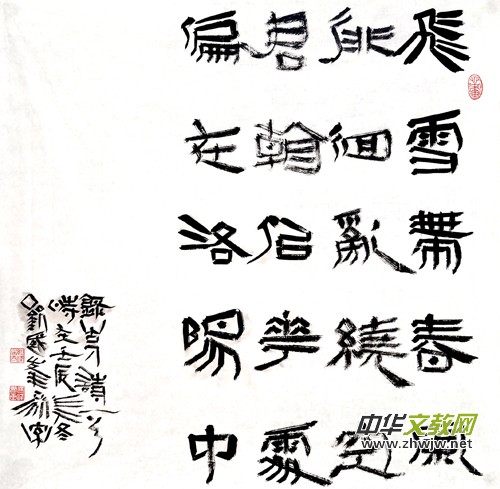 飛雪帶春風
徘徊亂繞空
君看似花處
偏在洛陽中
錄古詩一首
時在壬辰之冬
中华文教网
www.zhwjw.net